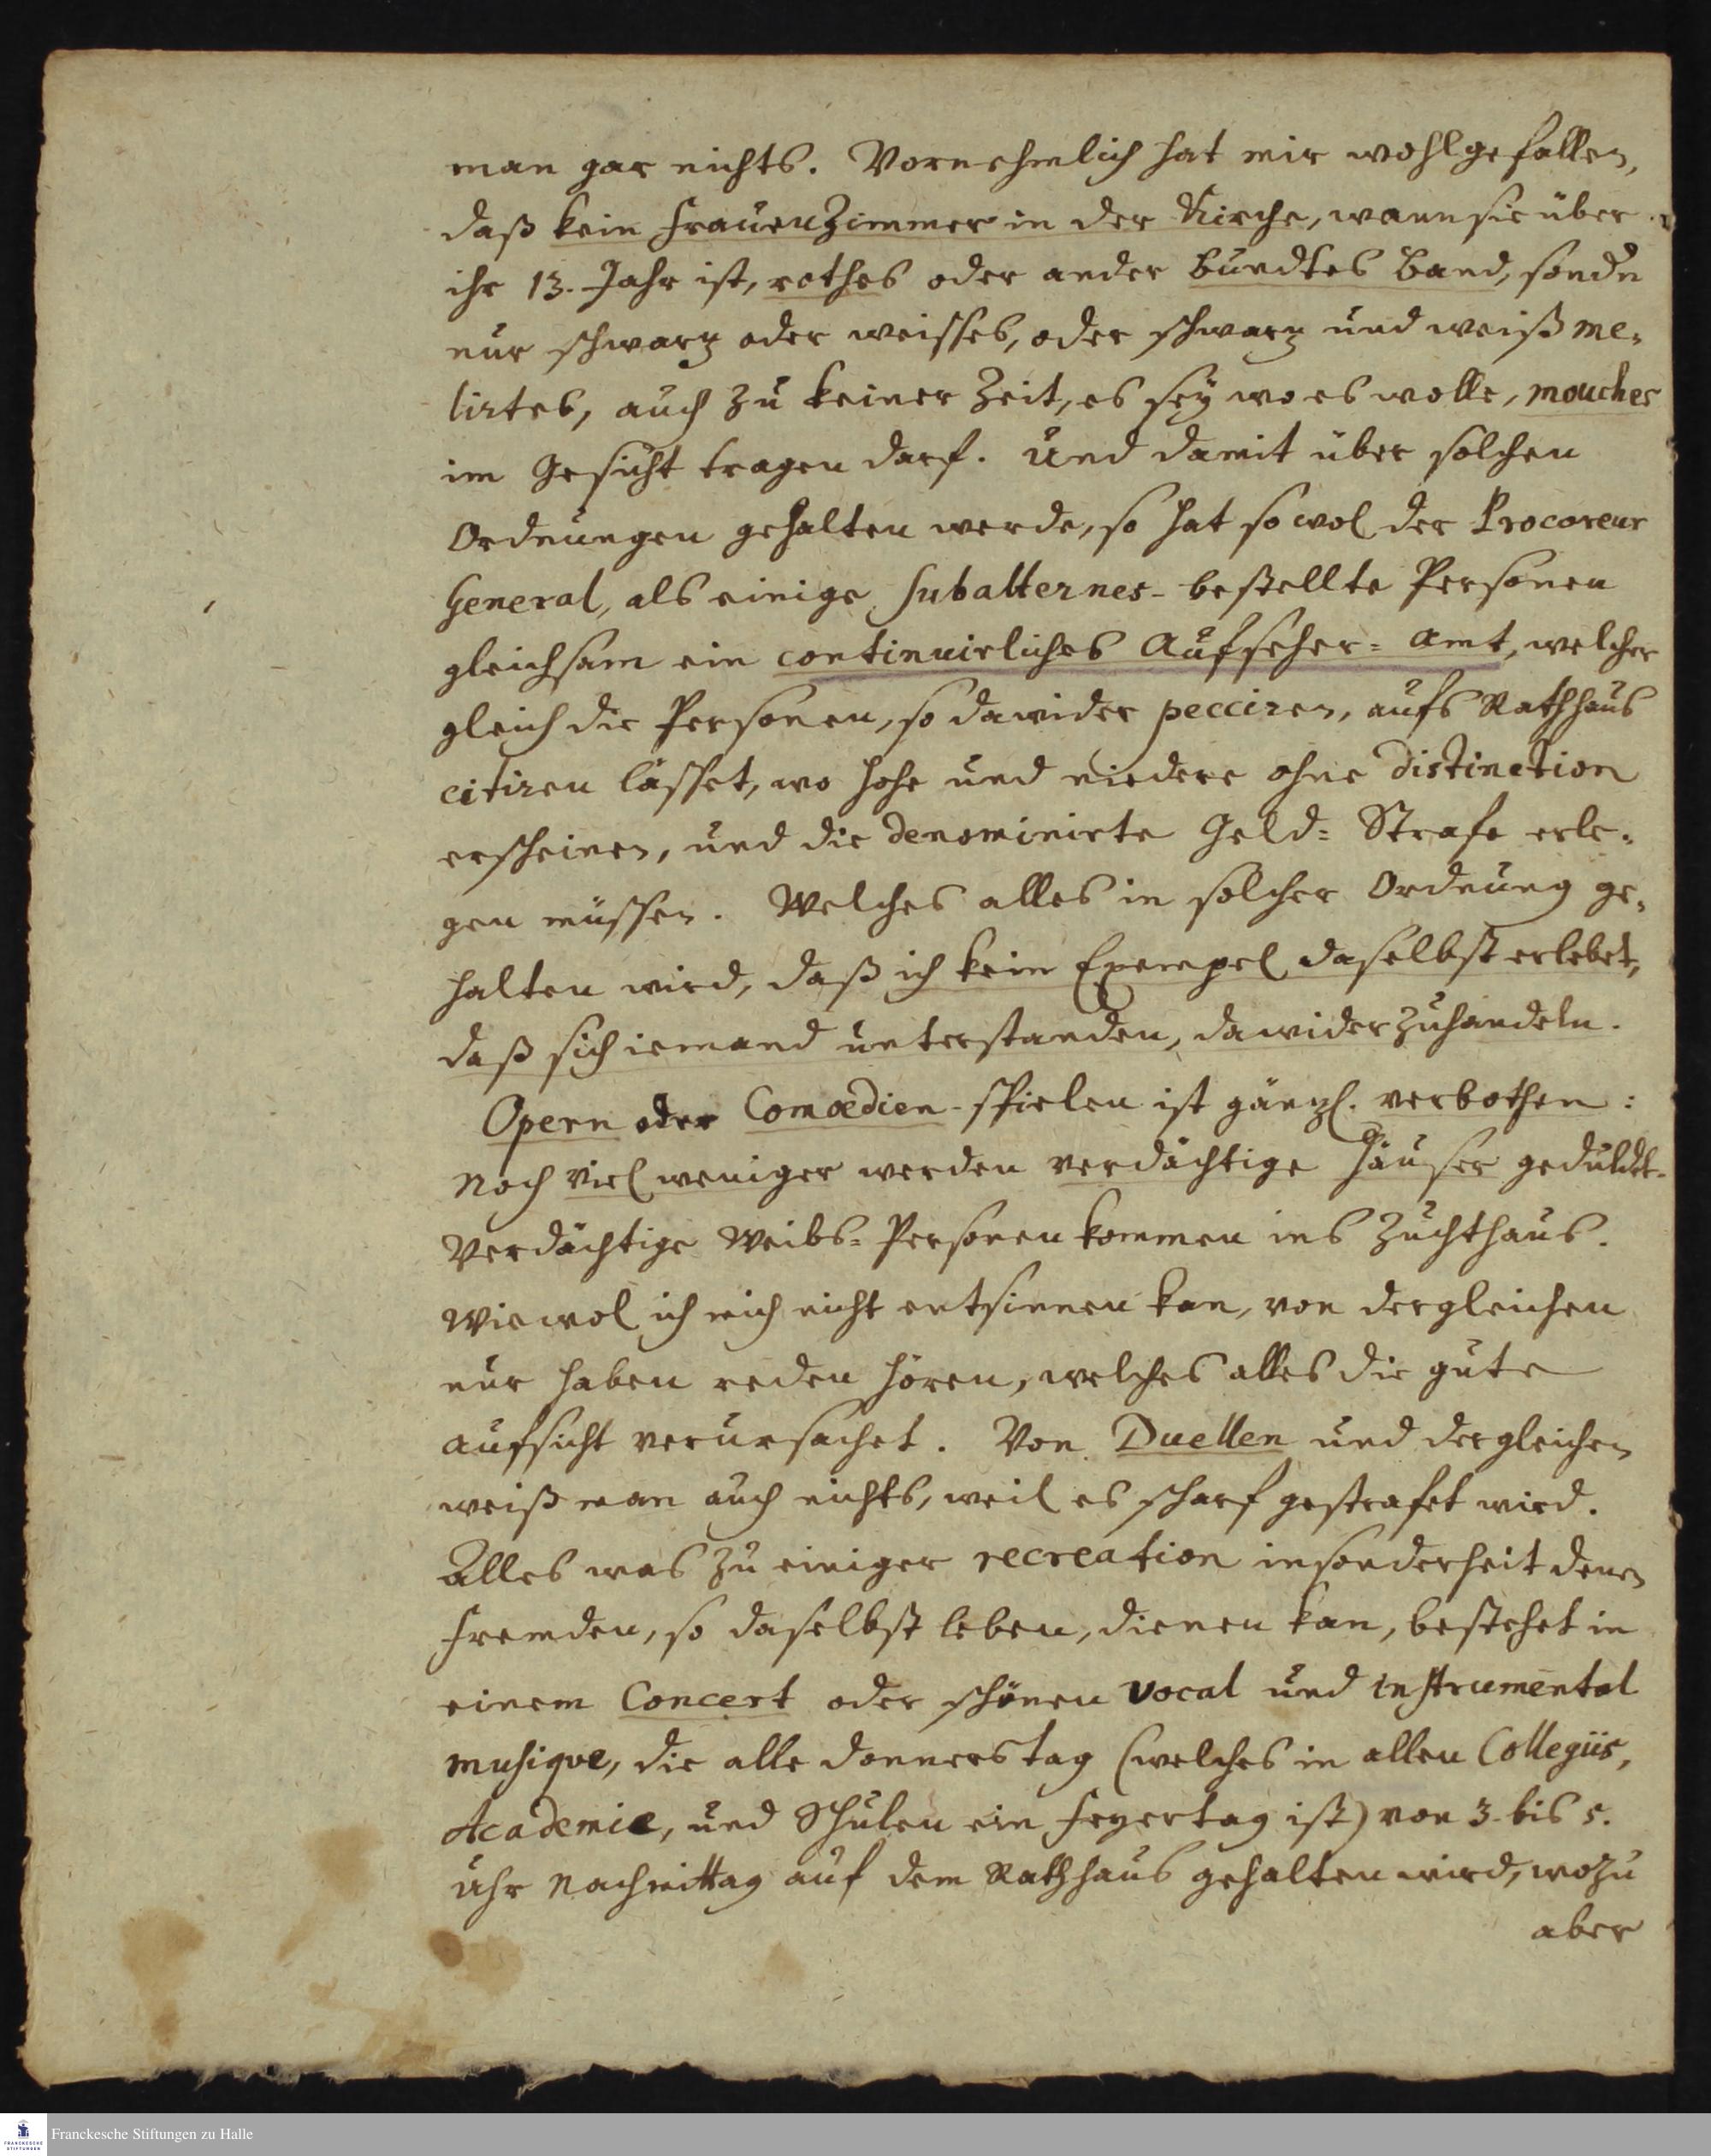 man gar nichts. Vornehmlich hat mir wohlgefallen,
daß kein Frauenzimmer in der Kirche, wann sie über
ihr 13. Jahr ist, rothes oder ander bundtes Band, sondn
nur schwartz oder weisses, oder schwartz und weiß me-
lirtes, auch zu keiner Zeit, es sey wo es wolle, mouches
im Gesicht tragen darf. Und damit über solchen
Ordnungen gehalten werde, so hat so wol der Procoreur
General, als einige Subalternes-bestellte Personen
gleichsam ein continuirliches Aufseher-Amt, welcher
gleich die Personen, so dawider pecciren, aufs Rathhaus
citiren lässet, wo hohe und niedere ohne distinction
erscheinen, und die denominirte Geld-Strafe erle-
gen müssen. Welches alles in solcher Ordnung ge-
halten wird, daß ich kein Exempel daselbst erlebet,
daß sich iemand unterstanden, dawider zuhandeln.
Opern oder Comœdien-spielen ist gäntzl. verbothen:
Noch viel weniger werden verdächtige Häuser geduldet.
Verdächtige Weibs-Personen kommen ins Zuchthaus.
Wiewol ich mich nicht entsinnen kan, von dergleichen
nur haben reden hören, welches alles die gute
Aufsicht verursachet. Von Duellen und dergleichen
weiß man auch nichts, weil es scharf gestrafet wird.
Alles was zu einiger recreation insonderheit denen
Fremden, so daselbst leben, dienen kan, bestehet in
einem Concert oder schönen Vocal und instrumental
musique, die alle Donnerstag (welches in allen Collegiis,
Academie, und Schulen ein Feyertag ist) von 3. bis 5.
Uhr Nachmittag auf dem Rathhaus gehalten wird, wozu
aber
Franckesche Stiftungen zu Halle